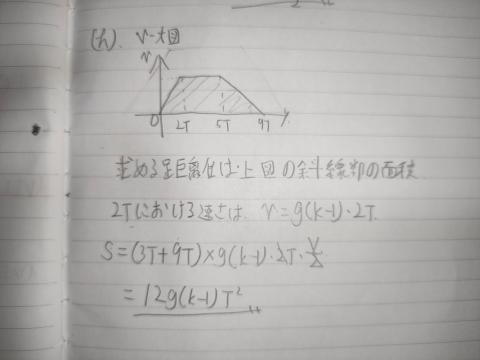 (h). v-t図
v
0 2T 5T 9T
求める距離は上図の斜線部の面積
2Tにおける速さは、v=g(k-1)・2T.
S=(3T+9T)×g(k-1)・2T・1/2
=12g(k-1)T²